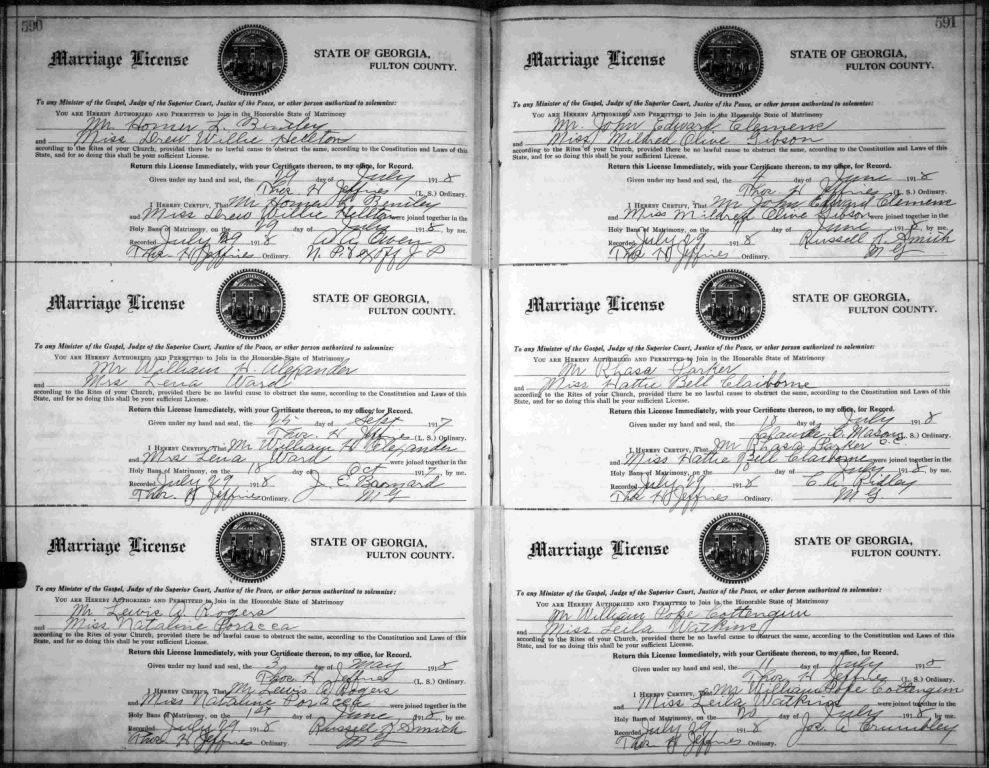 590
Marriage License
STATE OF GEORGIA,
FULTON COUNTY.
To any Minister of the Gospel, Judge of the Superior Court, Justice of the Peace, or other person authorized to solemnize:
YOU ARE HEREBY AUTHORIZED AND PERMITTED to Join in the Honorable State of Matrimony
Mr Homer L. Bentley
and Miss Drew Willie Helton
according to the Rites of your Church, provided there be no lawful cause to obstruct the same, according to the Constitution and Laws of this
State, and for so doing this shall be your sufficient License.
Return this License Immediately, with your Certificate thereon, to my office, for Record.
Given under my hand and seal, the 29 day of July 1918
Thos. H Jeffries (L. S.) Ordinary.
I HEREBY CERTIFY, That Mr Homer L Bentley
and Miss Drew Willie Helton were joined together in the
Holy Bans of Matrimony, on the 29 day of July 1918, by me.
Recorded July 29 1918
Thos H Jeffries Ordinary. N. P. & ex off J P
Marriage License
STATE OF GEORGIA,
FULTON COUNTY.
To any Minister of the Gospel, Judge of the Superior Court, Justice of the Peace, or other person authorized to solemnize:
YOU ARE HEREBY AUTHORIZED AND PERMITTED to Join in the Honorable State of Matrimony
Mr William H. Alexander
and Mrs Lena Ward
according to the Rites of your Church, provided there be no lawful cause to obstruct the same, according to the Constitution and Laws of this
State, and for so doing this shall be your sufficient License.
Return this License Immediately, with your Certificate thereon, to my office, for Record.
Given under my hand and seal, the 25 day of Sept 1917
Thos. H. Jeffries (L. S.) Ordinary.
I HEREBY CERTIFY, That Mr William H Alexander
and Mrs Lena Ward were joined together in the
Holy Bans of Matrimony, on the 18 day of Oct 1917, by me.
Recorded July 29 1918 J. E. Barnard
Thos. H Jeffries Ordinary. M G
Marriage License
STATE OF GEORGIA,
FULTON COUNTY.
To any Minister of the Gospel, Judge of the Superior Court, Justice of the Peace, or other person authorized to solemnize:
YOU ARE HEREBY AUTHORIZED AND PERMITTED to Join in the Honorable State of Matrimony
Mr Lewis A. Rogers
and Miss Nataline Poracca
according to the Rites of your Church, provided there be no lawful cause to obstruct the same, according to the Constitution and Laws of this
State, and for so doing this shall be your sufficient License.
Return this License Immediately, with your Certificate thereon, to my office, for Record.
Given under my hand and seal, the 3 day of May 1918
Thos. H Jeffries (L. S.) Ordinary.
I HEREBY CERTIFY, That Mr Lewis A Rogers
and Miss Nataline Poracca were joined together in the
Holy Bans of Matrimony, on the day of June 1918, by me.
Recorded July 29 1918 Russell K Smith
Thos H Jeffries Ordinary. M G
591
Marriage License
STATE OF GEORGIA,
FULTON COUNTY.
To any Minister of the Gospel, Judge of the Superior Court, Justice of the Peace, or other person authorized to solemnize:
YOU ARE HEREBY AUTHORIZED AND PERMITTED to Join in the Honorable State of Matrimony
Mr. John Edward Clemens
and Miss. Mildred Olive Gibson
according to the Rites of your Church, provided there be no lawful cause to obstruct the same, according to the Constitution and Laws of this
State, and for so doing this shall be your sufficient License.
Return this License Immediately, with your Certificate thereon, to my office, for Record.
Given under my hand and seal, the 4 day of June 1918
Thos. H Jeffries (L. S.) Ordinary.
I HEREBY CERTIFY, That Mr John Edward Clemens
and Miss Mildred Olive Gibson were joined together in the
Holy Bans of Matrimony, on the day of June 1918, by me.
Recorded July 29 1918 Russell K Smith
Thos H Jeffries Ordinary. M G
Marriage License
STATE OF GEORGIA,
FULTON COUNTY.
To any Minister of the Gospel, Judge of the Superior Court, Justice of the Peace, or other person authorized to solemnize:
YOU ARE HEREBY AUTHORIZED AND PERMITTED to Join in the Honorable State of Matrimony
Mr Rhasa Parker
and Miss Hattie Bell Claiborne
according to the Rites of your Church, provided there be no lawful cause to obstruct the same, according to the Constitution and Laws of this
State, and for so doing this shall be your sufficient License.
Return this License Immediately, with your Certificate thereon, to my office, for Record.
Given under my hand and seal, the 18 day of July 1918
Claude C. Mason (L. S.) Ordinary.
I HEREBY CERTIFY, That Mr Rhasa Parker C.C.
and Miss Hattie Bell Claiborne were joined together in the
Holy Bans of Matrimony, on the 18 day of July 1918, by me.
Recorded July 29 1918 Ridley
Thos H Jeffries Ordinary. M G.
Marriage License
STATE OF GEORGIA,
FULTON COUNTY.
To any Minister of the Gospel, Judge of the Superior Court, Justice of the Peace, or other person authorized to solemnize:
YOU ARE HEREBY AUTHORIZED AND PERMITTED to Join in the Honorable State of Matrimony
Mr William Pope Cottengim
and Miss Leila Watkins
according to the Rites of your Church, provided there be no lawful cause to obstruct the same, according to the Constitution and Laws of this
State, and for so doing this shall be your sufficient License.
Return this License Immediately, with your Certificate thereon, to my office, for Record.
Given under my hand and seal, the 11 day of July 1918
Thos H Jeffries (L. S.) Ordinary.
I HEREBY CERTIFY, That Mr William Pope Cottengim
and Miss Leila Watkins were joined together in the
Holy Bans of Matrimony, on the 20 day of July 1918, by me.
Recorded July 29 1918 Jos. A Crumbley
Thos H Jeffries Ordinary.